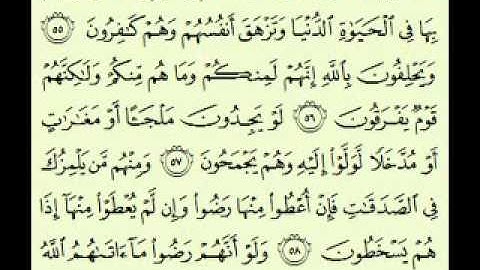 بِهَا فِي ٱلْحَيَوٰةِ ٱلدُّنْيَا وَتَزْهَقَ أَنفُسُهُمْ وَهُمْ كَـٰفِرُونَ ٥٥
وَيَحْلِفُونَ بِٱللَّهِ إِنَّهُمْ لَمِنكُمْ وَمَا هُم مِّنكُمْ وَلَـٰكِنَّهُمْ
قَوْمٌ يَفْرَقُونَ ٥٦ لَوْ يَجِدُونَ مَلْجَـًٔا أَوْ مَغَـٰرَٰتٍ
أَوْ مُدَّخَلًا لَّوَلَّوْا۟ إِلَيْهِ وَهُمْ يَجْمَحُونَ ٥٧ وَمِنْهُم مَّن يَلْمِزُكَ
فِي ٱلصَّدَقَـٰتِ فَإِنْ أُعْطُوا۟ مِنْهَا رَضُوا۟ وَإِن لَّمْ يُعْطَوْا۟ مِنْهَآ إِذَا
هُمْ يَسْخَطُونَ ٥٨ وَلَوْ أَنَّهُمْ رَضُوا۟ مَآ ءَاتَىٰهُمُ ٱللَّهُ